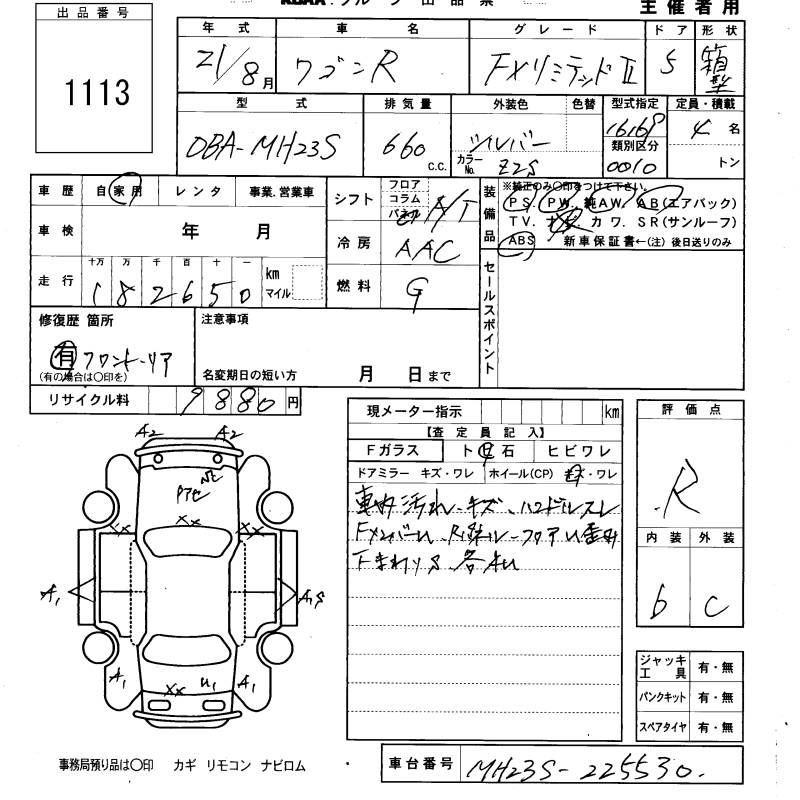 主催者用
出品番号
1113
年式 車名 グレード ドア 形状
21/8月 ワゴンR FXリミテッドII 5 箱型
型式 排気量 外装色 色替 型式指定 定員・積載
DBA-MH23S 660 c.c. シルバー 16168 4名
カラーNo. Z2S 類別区分 0010 トン
車歴 自家用 レンタ 事業.営業車
シフト フロア コラム パネル A/T
装備品 ※純正のみ〇印をつけて下さい。
PS. PW. 純AW. AB(エアバック)
TV. ナビ カワ. SR(サンルーフ)
ABS 新車保証書←(注)後日送りのみ
車検 年 月
冷房 AAC
走行 十万 万 千 百 十 一
182650 km マイル
燃料 G
セールスポイント
修復歴 箇所 注意事項
有 フロント・リア
(有の場合は〇印を) 名変期日の短い方 月 日まで
リサイクル料 9880円
現メーター指示 km
評価点
R
【査定員記入】
Fガラス ト飛石 ヒビワレ
ドアミラー キズ・ワレ ホイール(CP) キズ・ワレ
車内汚れ・キズ、ハンドルスレ
内装 外装
6 C
A2 A2
XX XX XX
A1 A1S
A1 XX U1 A1
ジャッキ工具 有・無
パンクキット 有・無
スペアタイヤ 有・無
事務局預り品は〇印 カギ リモコン ナビロム
車台番号 MH23S-225530.